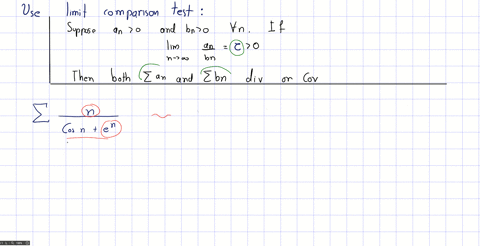 Use limit comparison test :
Suppose an >0 and bn >0 ∀n. If
lim n→∞ an/bn = c >0
Then both Σ an and Σ bn div or Cov
Σ n / (Cos n + e^n) ~